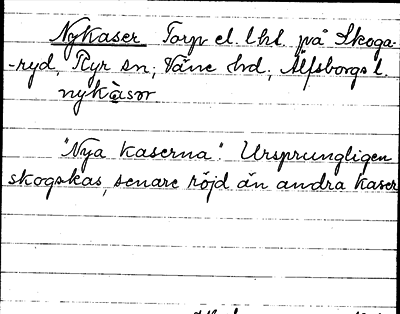 Nykaser Torp el. lht. på Skoga-
-ryd, Ryr sn, Väne hd, Älfsborgs l.
nykàsər
"Nya kaserna". Ursprungligen
skogskas, senare röjd än andra kaser